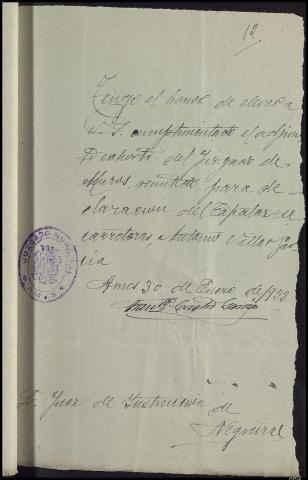 12
Tengo el honor de elevar a
V. S. cumplimentado el adjun
to exhorto del Juzgado de
Muros, remitido para de
claración del Capataz de
carreteras, Antonio Villar Gar
cía
Ames 30 de Enero de 1933
JUZGADO MUNICIPAL
AMES
Sr. Juez de Instrucción de
Negreira